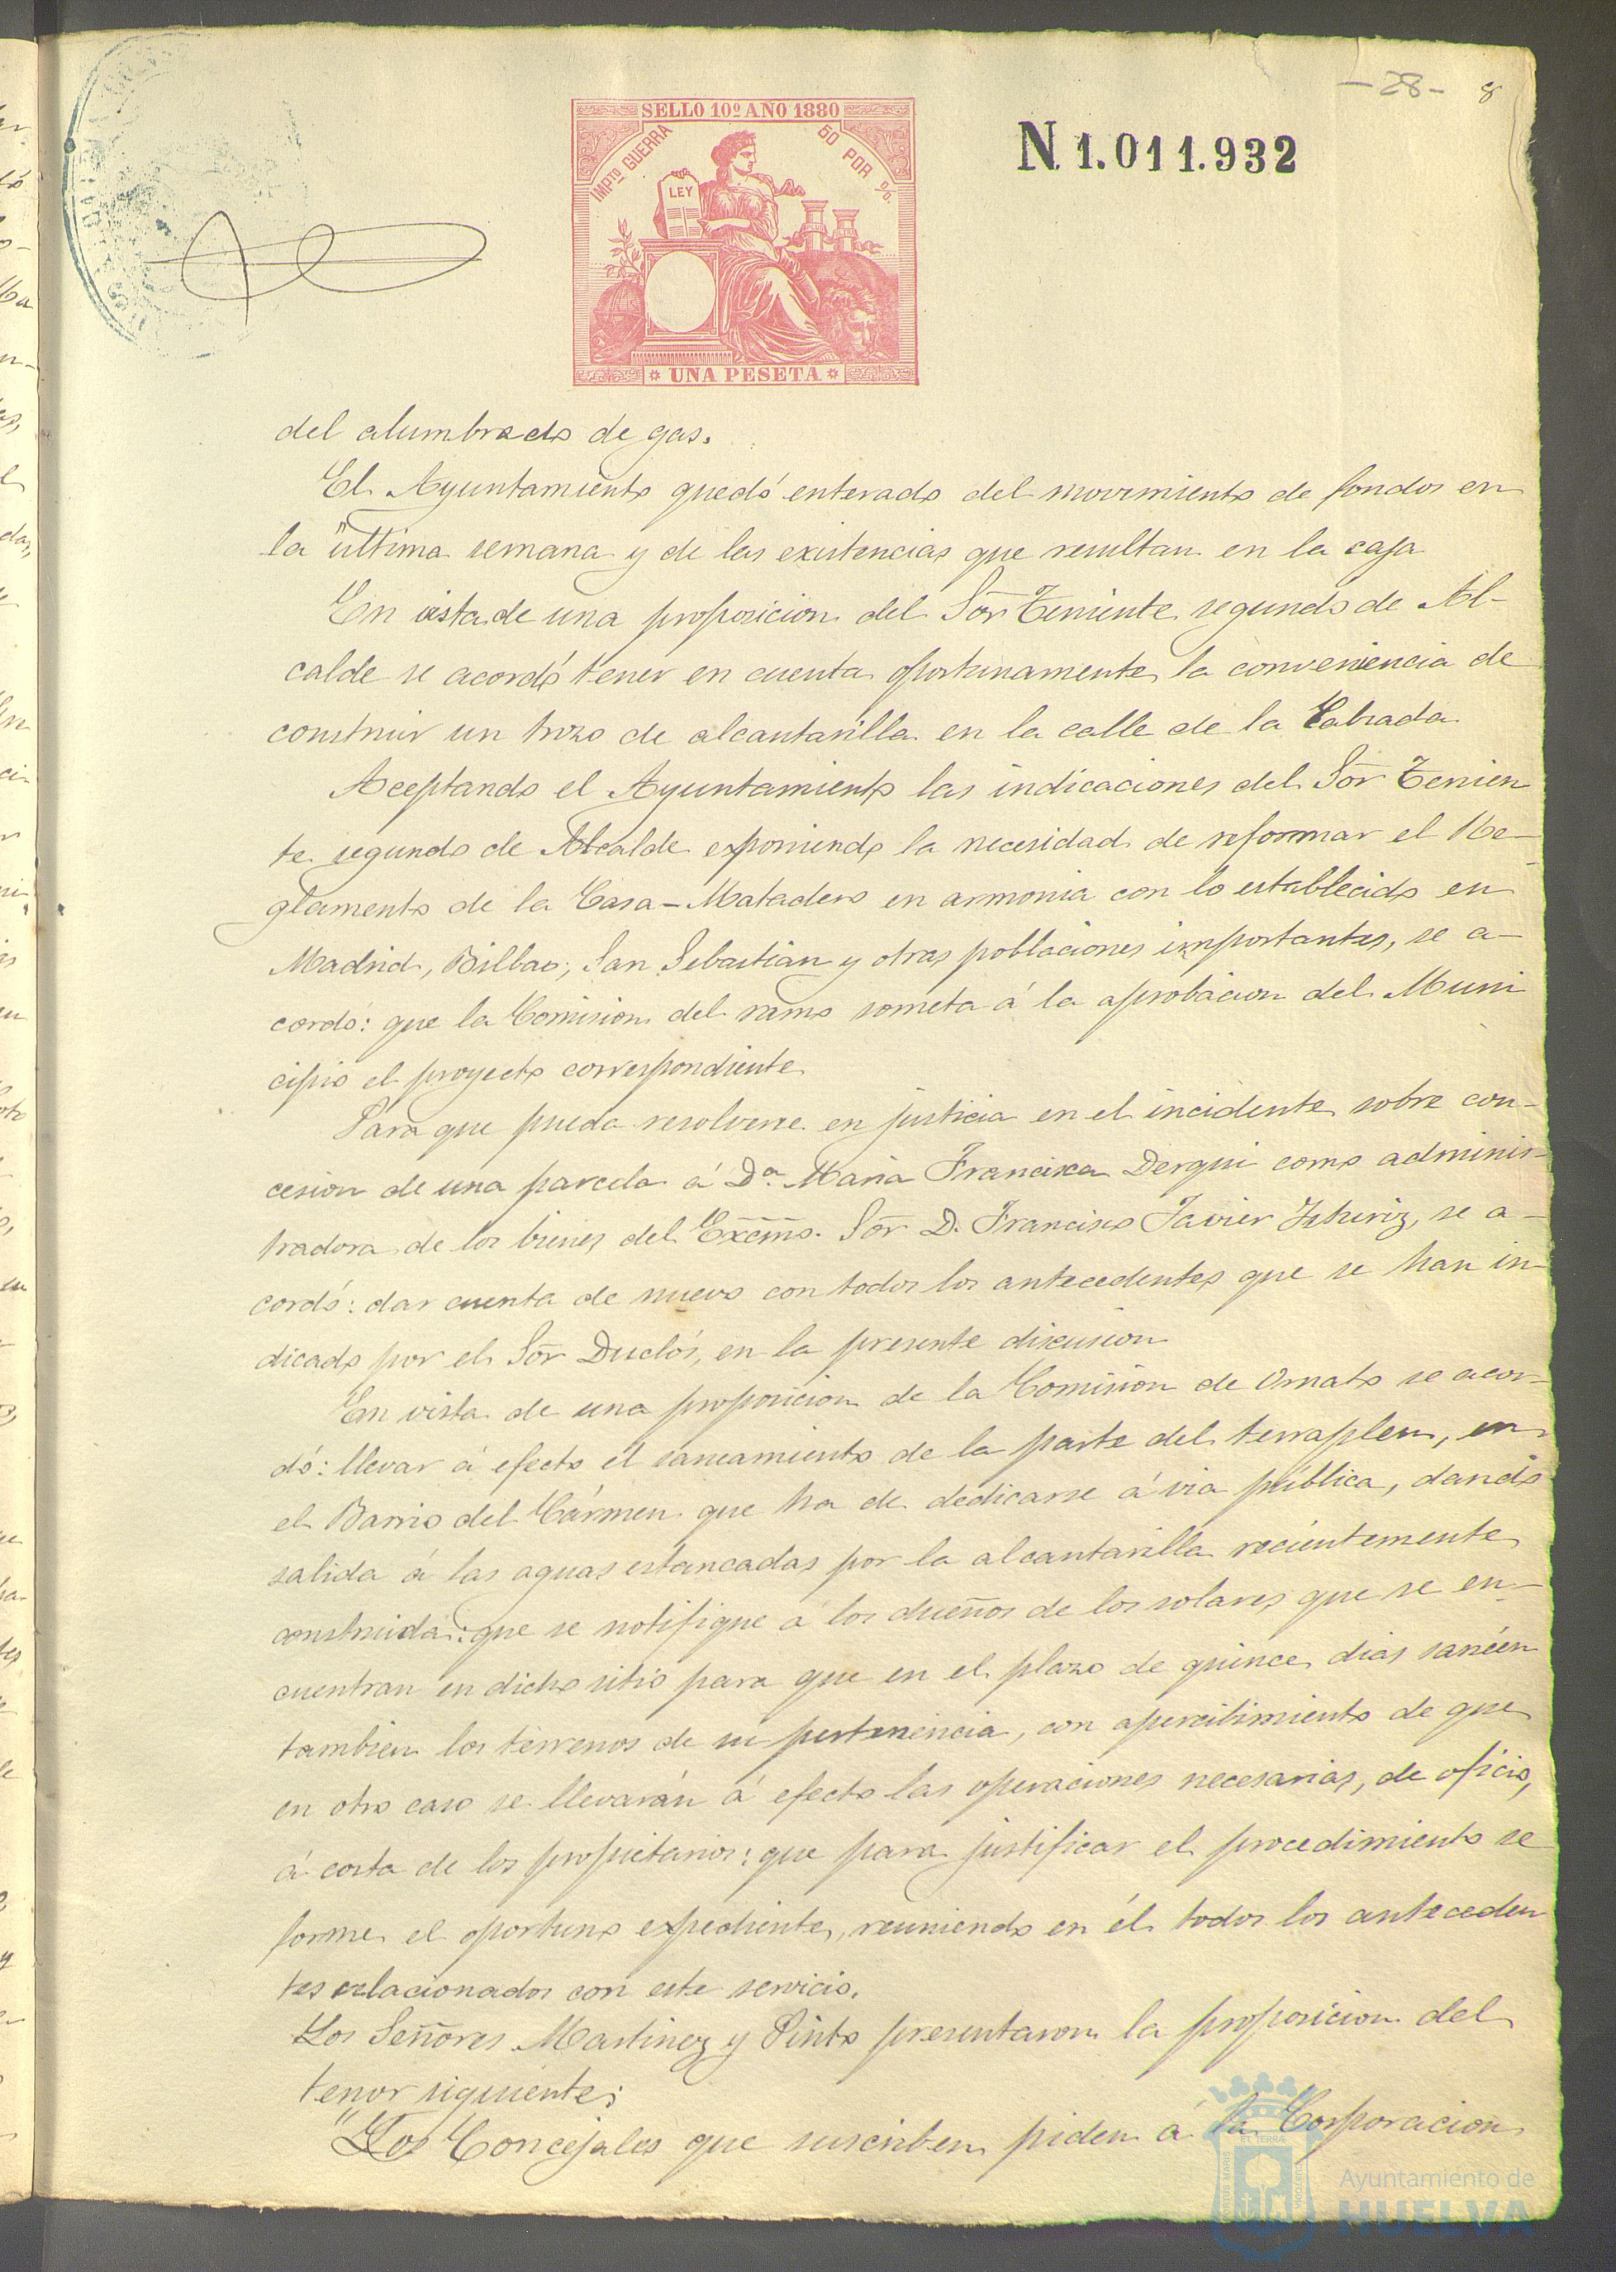 -28- 8
SELLO 10º AÑO 1880
IMPTO GUERRA 50 POR %
LEY
UNA PESETA
N. 1.011.932
del alumbrado de gas.
El Ayuntamiento quedó enterado del movimiento de fondos en
la última semana y de las existencias que resultan en la caja
En vista de una proposicion del Sor Teniente segundo de Al-
calde se acordó tener en cuenta oportunamente la conveniencia de
construir un trozo de alcantarilla en la calle de la Calzada
Aceptando el Ayuntamiento las indicaciones del Sor Tenien
te segundo de Alcalde exponiendo la necesidad de reformar el Re-
glamento de la Casa-Matadero en armonia con lo establecido en
Madrid, Bilbao, San Sebastian y otras poblaciones importantes, se a-
cordó: que la Comision del ramo someta á la aprobacion del Muni
cipio el proyecto correspondiente
Para que pueda resolverse en justicia en el incidente sobre con-
cesion de una parcela á Dª Maria Francisca Derqui como adminis-
tradora de los bienes del Excmo. Sor D. Francisco Javier Isturiz, se a-
cordó: dar cuenta de nuevo con todos los antecedentes que se han in-
dicado por el Sor Duclós, en la presente discusion
En vista de una proposicion de la Comision de Ornato se acor-
dó: llevar á efecto el saneamiento de la parte del terraplen, en
el Barrio del Cármen que ha de dedicarse á via pública, dando
salida á las aguas estancadas por la alcantarilla recientemente
construida: que se notifique á los dueños de los solares que se en-
cuentran en dicho sitio para que en el plazo de quince dias saneen
tambien los terrenos de su pertenencia, con apercibimiento de que
en otro caso se llevarán á efecto las operaciones necesarias, de oficio,
á costa de los propietarios: que para justificar el procedimiento se
forme el oportuno expediente, reuniendo en él todos los anteceden
tes relacionados con este servicio.
Los Señores Martinez y Pinto presentaron la proposicion del
tenor siguiente:
"Los Concejales que suscriben piden á la Corporacion
Ayuntamiento de
HUELVA